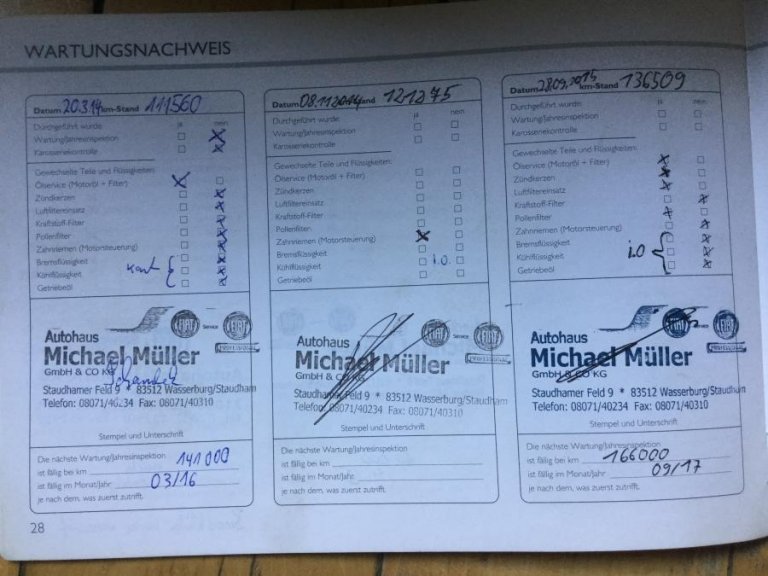 WARTUNGSNACHWEIS
Datum 20.3.14 km-Stand 111560
Durchgeführt wurde: ja nein
Wartung/Jahresinspektion
Karosseriekontrolle
Gewechselte Teile und Flüssigkeiten:
Ölservice (Motoröl + Filter)
Zündkerzen
Luftfiltereinsatz
Kraftstoff-Filter
Pollenfilter
Zahnriemen (Motorsteuerung)
Bremsflüssigkeit
Kühlflüssigkeit
Getriebeöl
Autohaus FIAT Service FIAT
Michael Müller
GmbH & CO KG
Staudhamer Feld 9 * 83512 Wasserburg/Staudham
Telefon: 08071/40234 Fax: 08071/40310
Stempel und Unterschrift
Die nächste Wartung/Jahresinspektion
ist fällig bei km 141000
ist fällig im Monat/Jahr 03/16
je nach dem, was zuerst zutrifft.
Datum 08.11.2014 km-Stand 121275
Durchgeführt wurde: ja nein
Wartung/Jahresinspektion
Karosseriekontrolle
Gewechselte Teile und Flüssigkeiten:
Ölservice (Motoröl + Filter)
Zündkerzen
Luftfiltereinsatz
Kraftstoff-Filter
Pollenfilter
Zahnriemen (Motorsteuerung)
Bremsflüssigkeit
Kühlflüssigkeit i.O.
Getriebeöl
Autohaus FIAT Service FIAT
Michael Müller
GmbH & CO KG
Staudhamer Feld 9 * 83512 Wasserburg/Staudham
Telefon: 08071/40234 Fax: 08071/40310
Stempel und Unterschrift
Die nächste Wartung/Jahresinspektion
ist fällig bei km
ist fällig im Monat/Jahr
je nach dem, was zuerst zutrifft.
Datum 28.09.2015 km-Stand 136509
Durchgeführt wurde: ja nein
Wartung/Jahresinspektion
Karosseriekontrolle
Gewechselte Teile und Flüssigkeiten:
Ölservice (Motoröl + Filter)
Zündkerzen
Luftfiltereinsatz
Kraftstoff-Filter
Pollenfilter
Zahnriemen (Motorsteuerung)
Bremsflüssigkeit
Kühlflüssigkeit i.O
Getriebeöl
Autohaus FIAT Service FIAT
Michael Müller
GmbH & CO KG
Staudhamer Feld 9 * 83512 Wasserburg/Staudham
Telefon: 08071/40234 Fax: 08071/40310
Stempel und Unterschrift
Die nächste Wartung/Jahresinspektion
ist fällig bei km 166000
ist fällig im Monat/Jahr 09/17
je nach dem, was zuerst zutrifft.
28